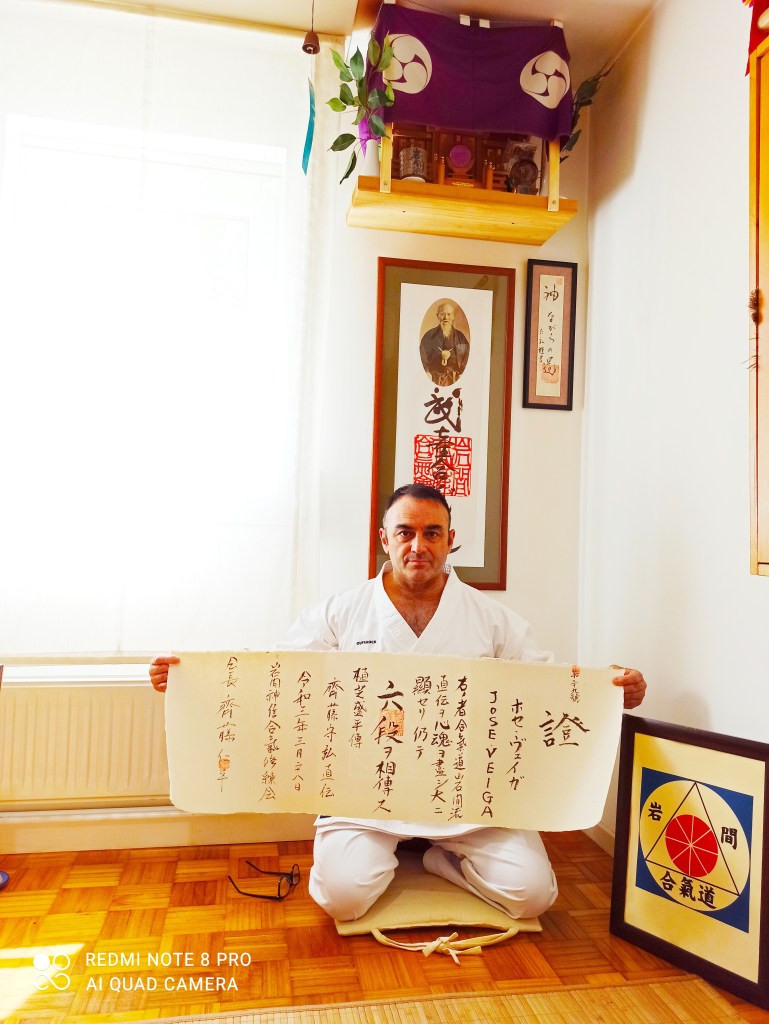 神ながらの道
證
ホセ・ヴェイガ
JOSE VEIGA
右ノ者合氣道岩間流
直伝ヲ心魂ヲ盡シ大ニ
顕セリ仍テ
六段ヲ相傳ス
植芝盛平傳
齊藤守弘直伝
令和二年三月二八日
岩間神信合氣修練会
会長 齊藤仁
岩間
合氣道
REDMI NOTE 8 PRO
AI QUAD CAMERA